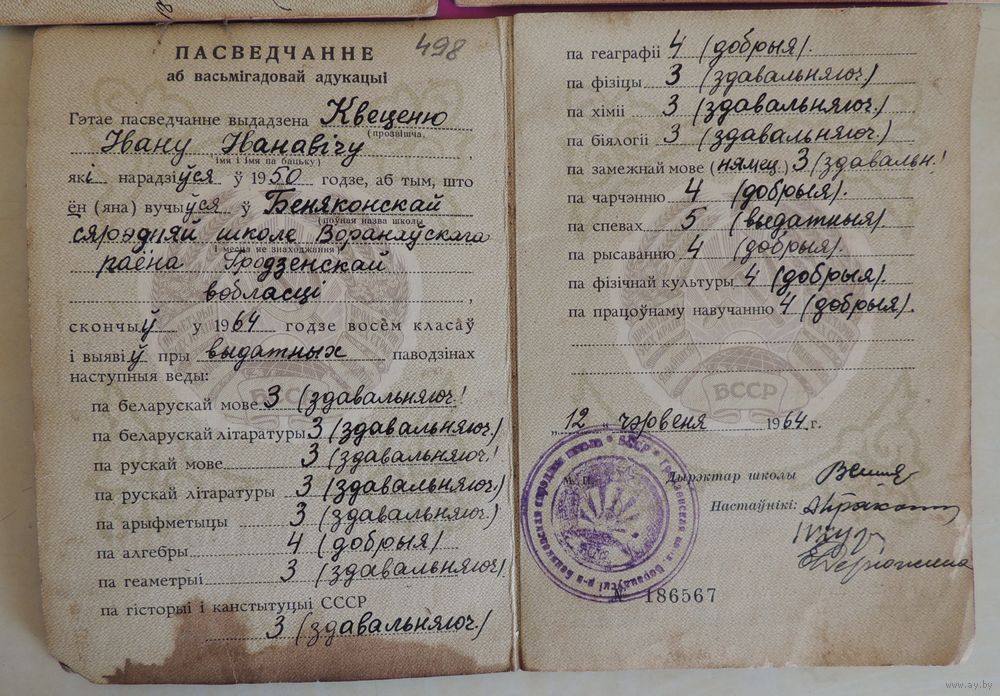 498
ПАСВЕДЧАННЕ
аб васьмігадовай адукацыі
Гэтае пасведчанне выдадзена Квеценю
(прозвішча,
Івану Іванавічу,
імя і імя па бацьку)
які нарадзіўся ў 1950 годзе, аб тым, што
ён (яна) вучыўся ў Беняконскай
(поўная назва школы
сярэдняй школе Воранаўскага
і месца яе знаходжання)
раёна Гродзенскай
вобласці,
скончыў у 1964 годзе восем класаў
і выявіў пры выдатных паводзінах
наступныя веды:
па беларускай мове 3 (здавальняюч.)
па беларускай літаратуры 3 (здавальняюч.)
па рускай мове 3 (здавальняюч.)
па рускай літаратуры 3 (здавальняюч.)
па арыфметыцы 3 (здавальняюч.)
па алгебры 4 (добрыя)
па геаметрыі 3 (здавальняюч.)
па гісторыі і канстытуцыі СССР
3 (здавальняюч.)
БССР
па геаграфіі 4 (добрыя).
па фізіцы 3 (здавальняюч.)
па хіміі 3 (здавальняюч.)
па біялогіі 3 (здавальняюч.)
па замежнай мове (нямец.) 3 (здавальн.)
па чарчэнню 4 (добрыя).
па спевах 5 (выдатныя)
па рысаванню 4 (добрыя).
па фізічнай культуры 4 (добрыя).
па працоўнаму навучанню 4 (добрыя).
БССР
„12„ чэрвеня 1964 г.
М. П.
Дырэктар школы
Настаўнікі:
№ 186567
www.ay.by